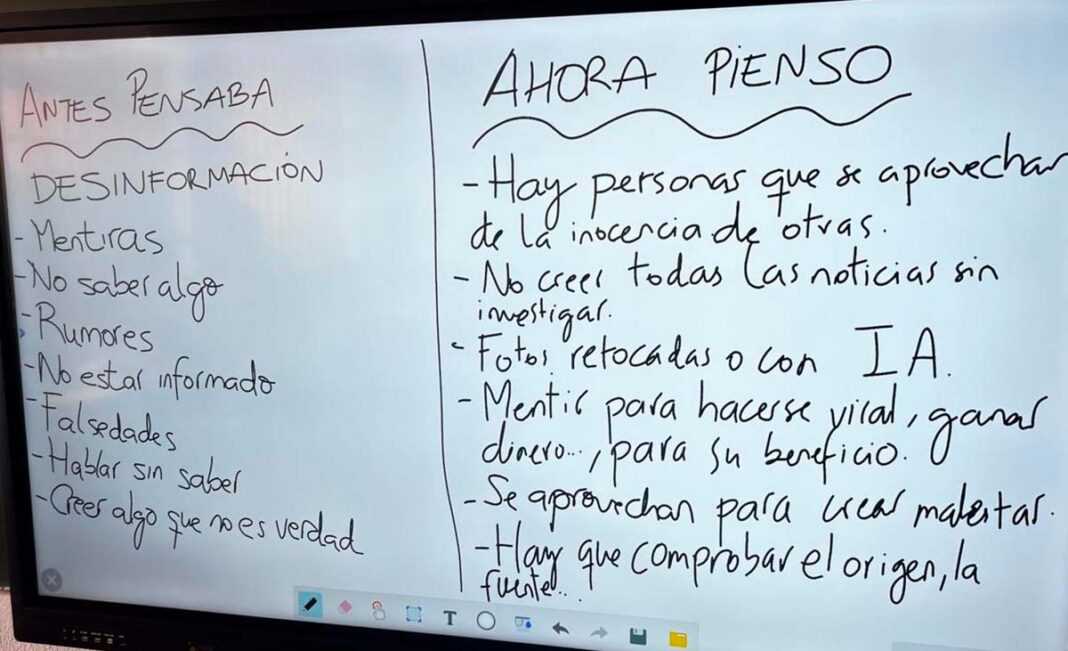 ANTES PENSABA
DESINFORMACIÓN
- Mentiras
- No saber algo
- Rumores
- No estar informado
- Falsedades
- Hablar sin saber
- Creer algo que no es verdad
AHORA PIENSO
- Hay personas que se aprovechan
de la inocencia de otras.
- No creer todas las noticias sin
investigar.
- Fotos retocadas o con IA.
- Mentir para hacerse viral, ganar
dinero..., para su beneficio.
- Se aprovechan para crear malestar.
- Hay que comprobar el origen, la
fuente...
T